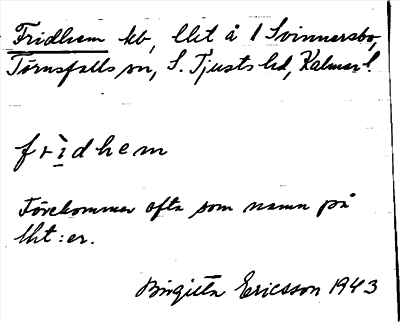 Fridhem kb, lht å 1 Svinnersbo,
Törnsfalls sn, S. Tjusts hd, Kalmar l.
frìdhem
Förekommer ofta som namn på
lht:er.
Birgitta Ericsson 1943